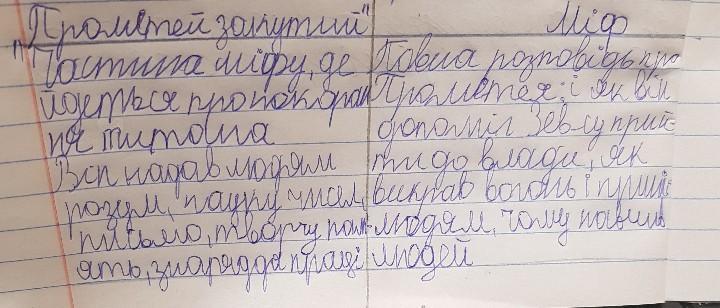 "Прометей закутий" Міф
Частина міфу, де Повна розповідь про
йдеться про покаран Прометея: і як він
ня титана допоміг Зевсу прий
Він надав людям ти до влади, як
розум, науку чисел, викрав вогонь і приніс
письмо, творчу пам- людям, чому навчив
ять, знаряддя праці людей